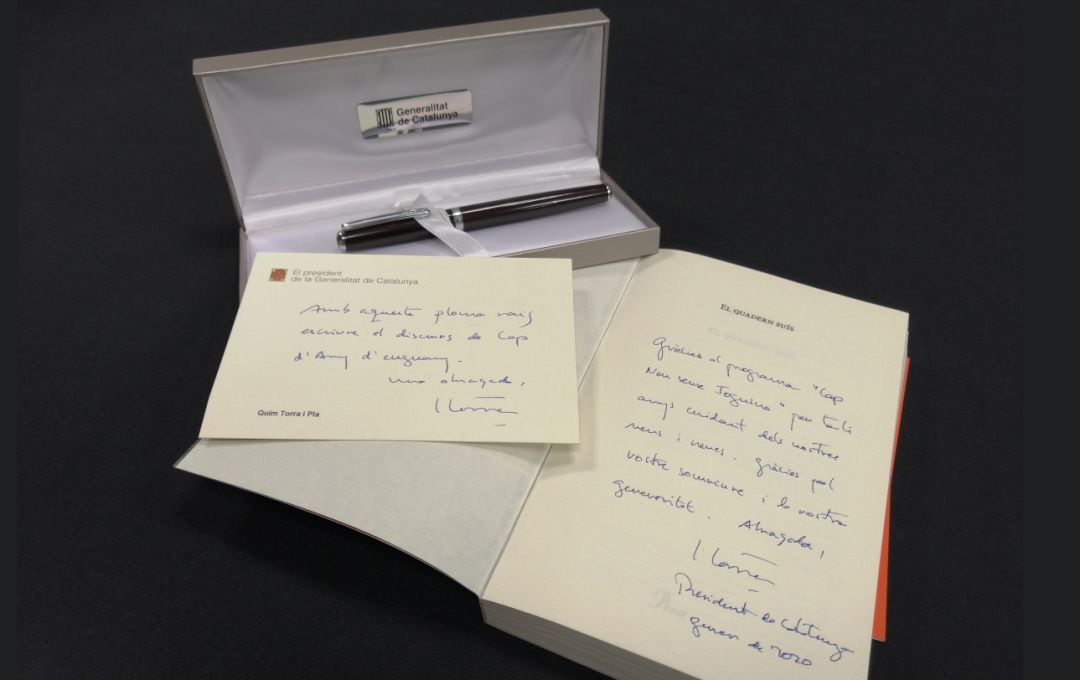 Generalitat
de Catalunya
El president
de la Generalitat de Catalunya
Amb aquesta ploma vaig
escriure el discurs de Cap
d'Any d'enguany.
una abraçada,
Quim Torra i Pla
EL QUADERN SUÍS
Gràcies al programa "Cap
Nen sense Joguina" per tants
anys cuidant dels nostres
nens i nenes. Gràcies pel
vostre somriure i la vostra
generositat. Abraçada,
President de Catalunya
gener de 2020